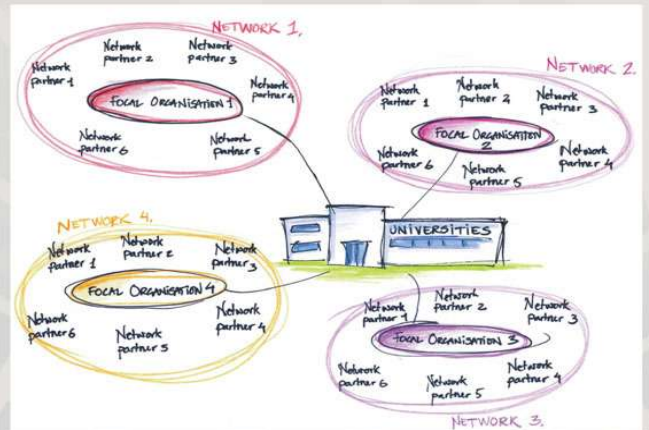 NETWORK 1.
Network
partner 1
Network
partner 2
Network
partner 3
Network
partner 4
FOCAL ORGANISATION 1
Network
partner 6
Network
partner 5
NETWORK 2.
Network
partner 1
Network
partner 2
Network
partner 3
FOCAL ORGANISATION
2
Network
partner 6
Network
partner 5
Network
partner 4
UNIVERSITIES
NETWORK 4.
Network
partner 1
Network
partner 2
Network
partner 3
FOCAL ORGANISATION 4
Network
partner 6
Network
partner 5
Network
partner 4
Network
partner 1
Network
partner 2
Network
partner 3
FOCAL ORGANISATION 3
Network
partner 6
Network
partner 5
Network
partner 4
NETWORK 3.